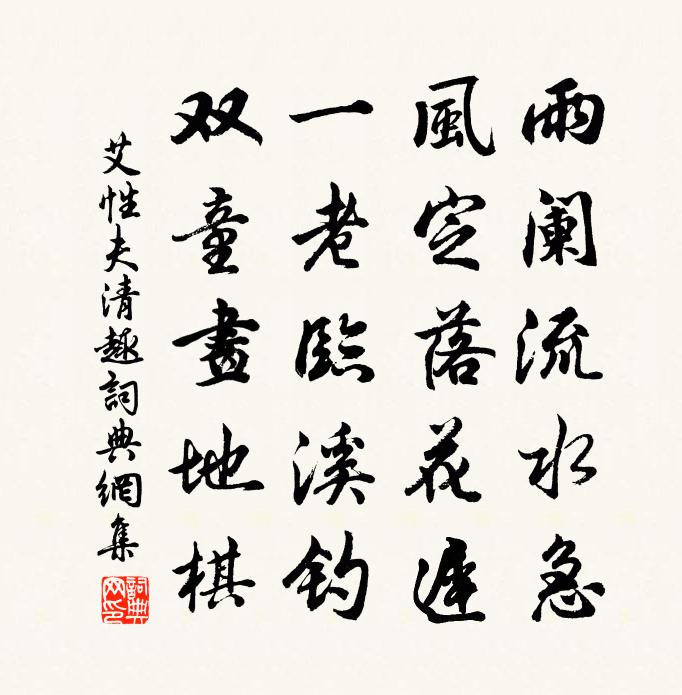 雨阑流水急
風定落花遲
一老臨溪钓
双童畫地棋
艾性夫清趣詞典網集
詞典網印